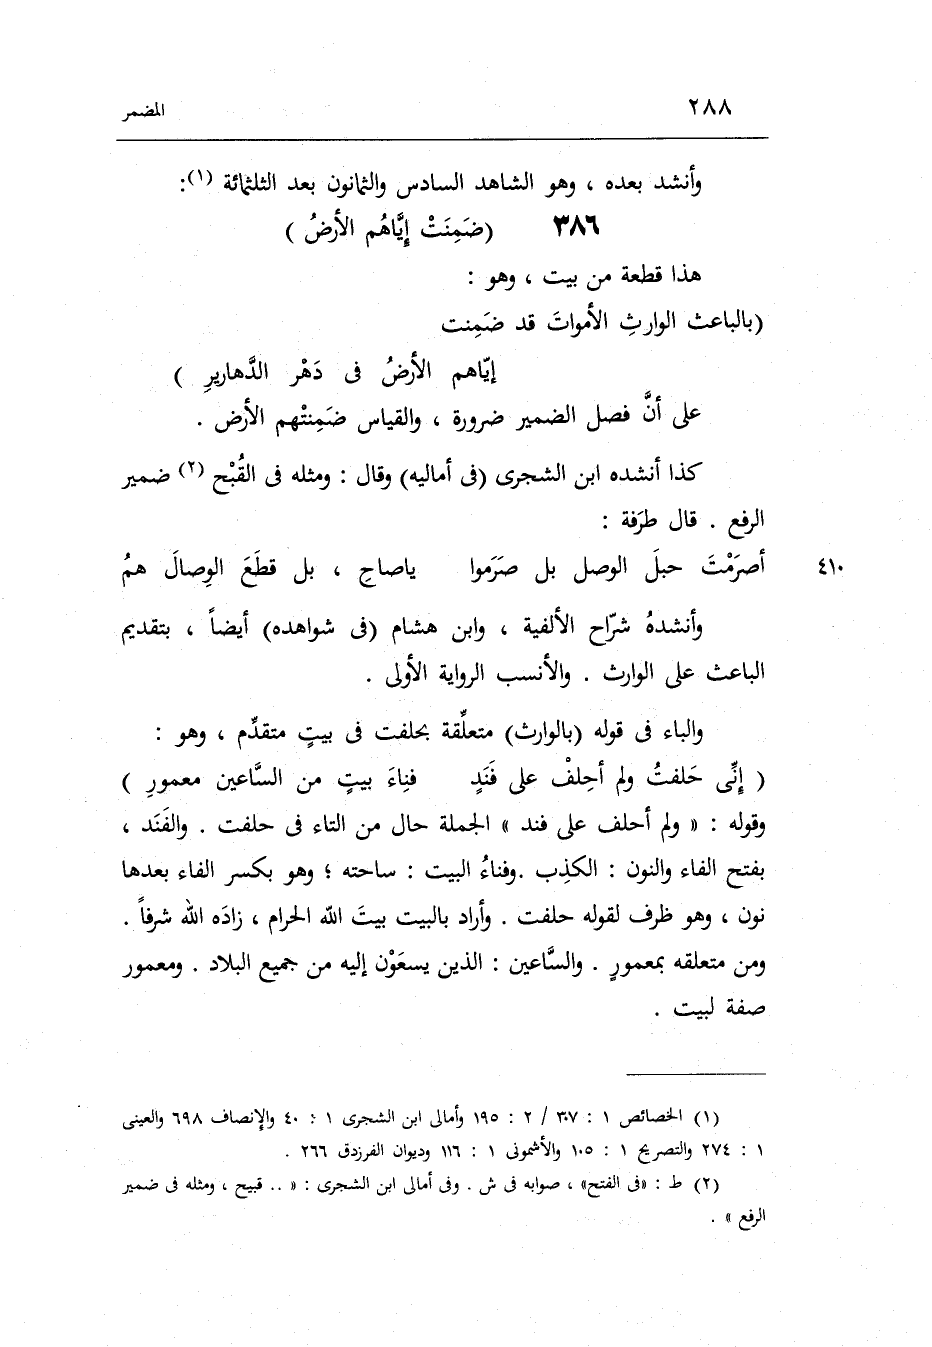 ٢٨٨ المضمر
وأنشد بعده ، وهو الشاهد السادس والثمانون بعد الثلثمائة (١):
٣٨٦ (ضَمِنَتْ إيَّاهُم الأرضُ )
هذا قطعة من بيت ، وهو :
(بالباعث الوارثِ الأمواتَ قد ضَمِنت
إيّاهم الأرضُ فى دَهْر الدَّهاريرِ )
على أنَّ فصل الضمير ضرورة ، والقياس ضَمِنتْهم الأرض .
كذا أنشده ابن الشجرى (فى أماليه) وقال : ومثله فى القُبْح (٢) ضمير
الرفع . قال طرَفة :
أصرَمْتَ حبلَ الوصل بل صرَموا ياصاحِ ، بل قطَعَ الوِصالَ همُ ٤١٠
وأنشدهُ شرّاح الألفية ، وابن هشام (فى شواهده) أيضاً ، بتقديم
الباعث على الوارث . والأنسب الرواية الأولى .
والباء فى قوله (بالوارث) متعلِّقة بحلفت فى بيتٍ متقدِّم ، وهو :
( إنِّى حَلفتُ ولم أحلِفْ على فَنَدٍ فنِاءَ بيتٍ من السَّاعين معمورِ )
وقوله : « ولم أحلف على فند » الجملة حال من التاء فى حلفت . والفَنَد ،
بفتح الفاء والنون : الكذِب .وفناءُ البيت : ساحته ؛ وهو بكسر الفاء بعدها
نون ، وهو ظرف لقوله حلفت . وأراد بالبيت بيتَ الله الحرام ، زادَه الله شرفاً .
ومن متعلقه بمعمورٍ . والسَّاعين : الذين يسعَوْن إليه من جميع البلاد . ومعمور
صفة لبيت .
(١) الخصائص ١ : ٣٠٧ / ٢ : ١٩٥ وأمالى ابن الشجرى ١ : ٤٠ والإنصاف ٦٩٨ والعينى
١ : ٢٧٤ والتصريح ١ : ١٠٥ والأشمونى ١ : ١١٦ وديوان الفرزدق ٢٦٦ .
(٢) ط : «فى الفتح» ، صوابه فى ش . وفى أمالى ابن الشجرى : « .. قبيح ، ومثله فى ضمير
الرفع » .